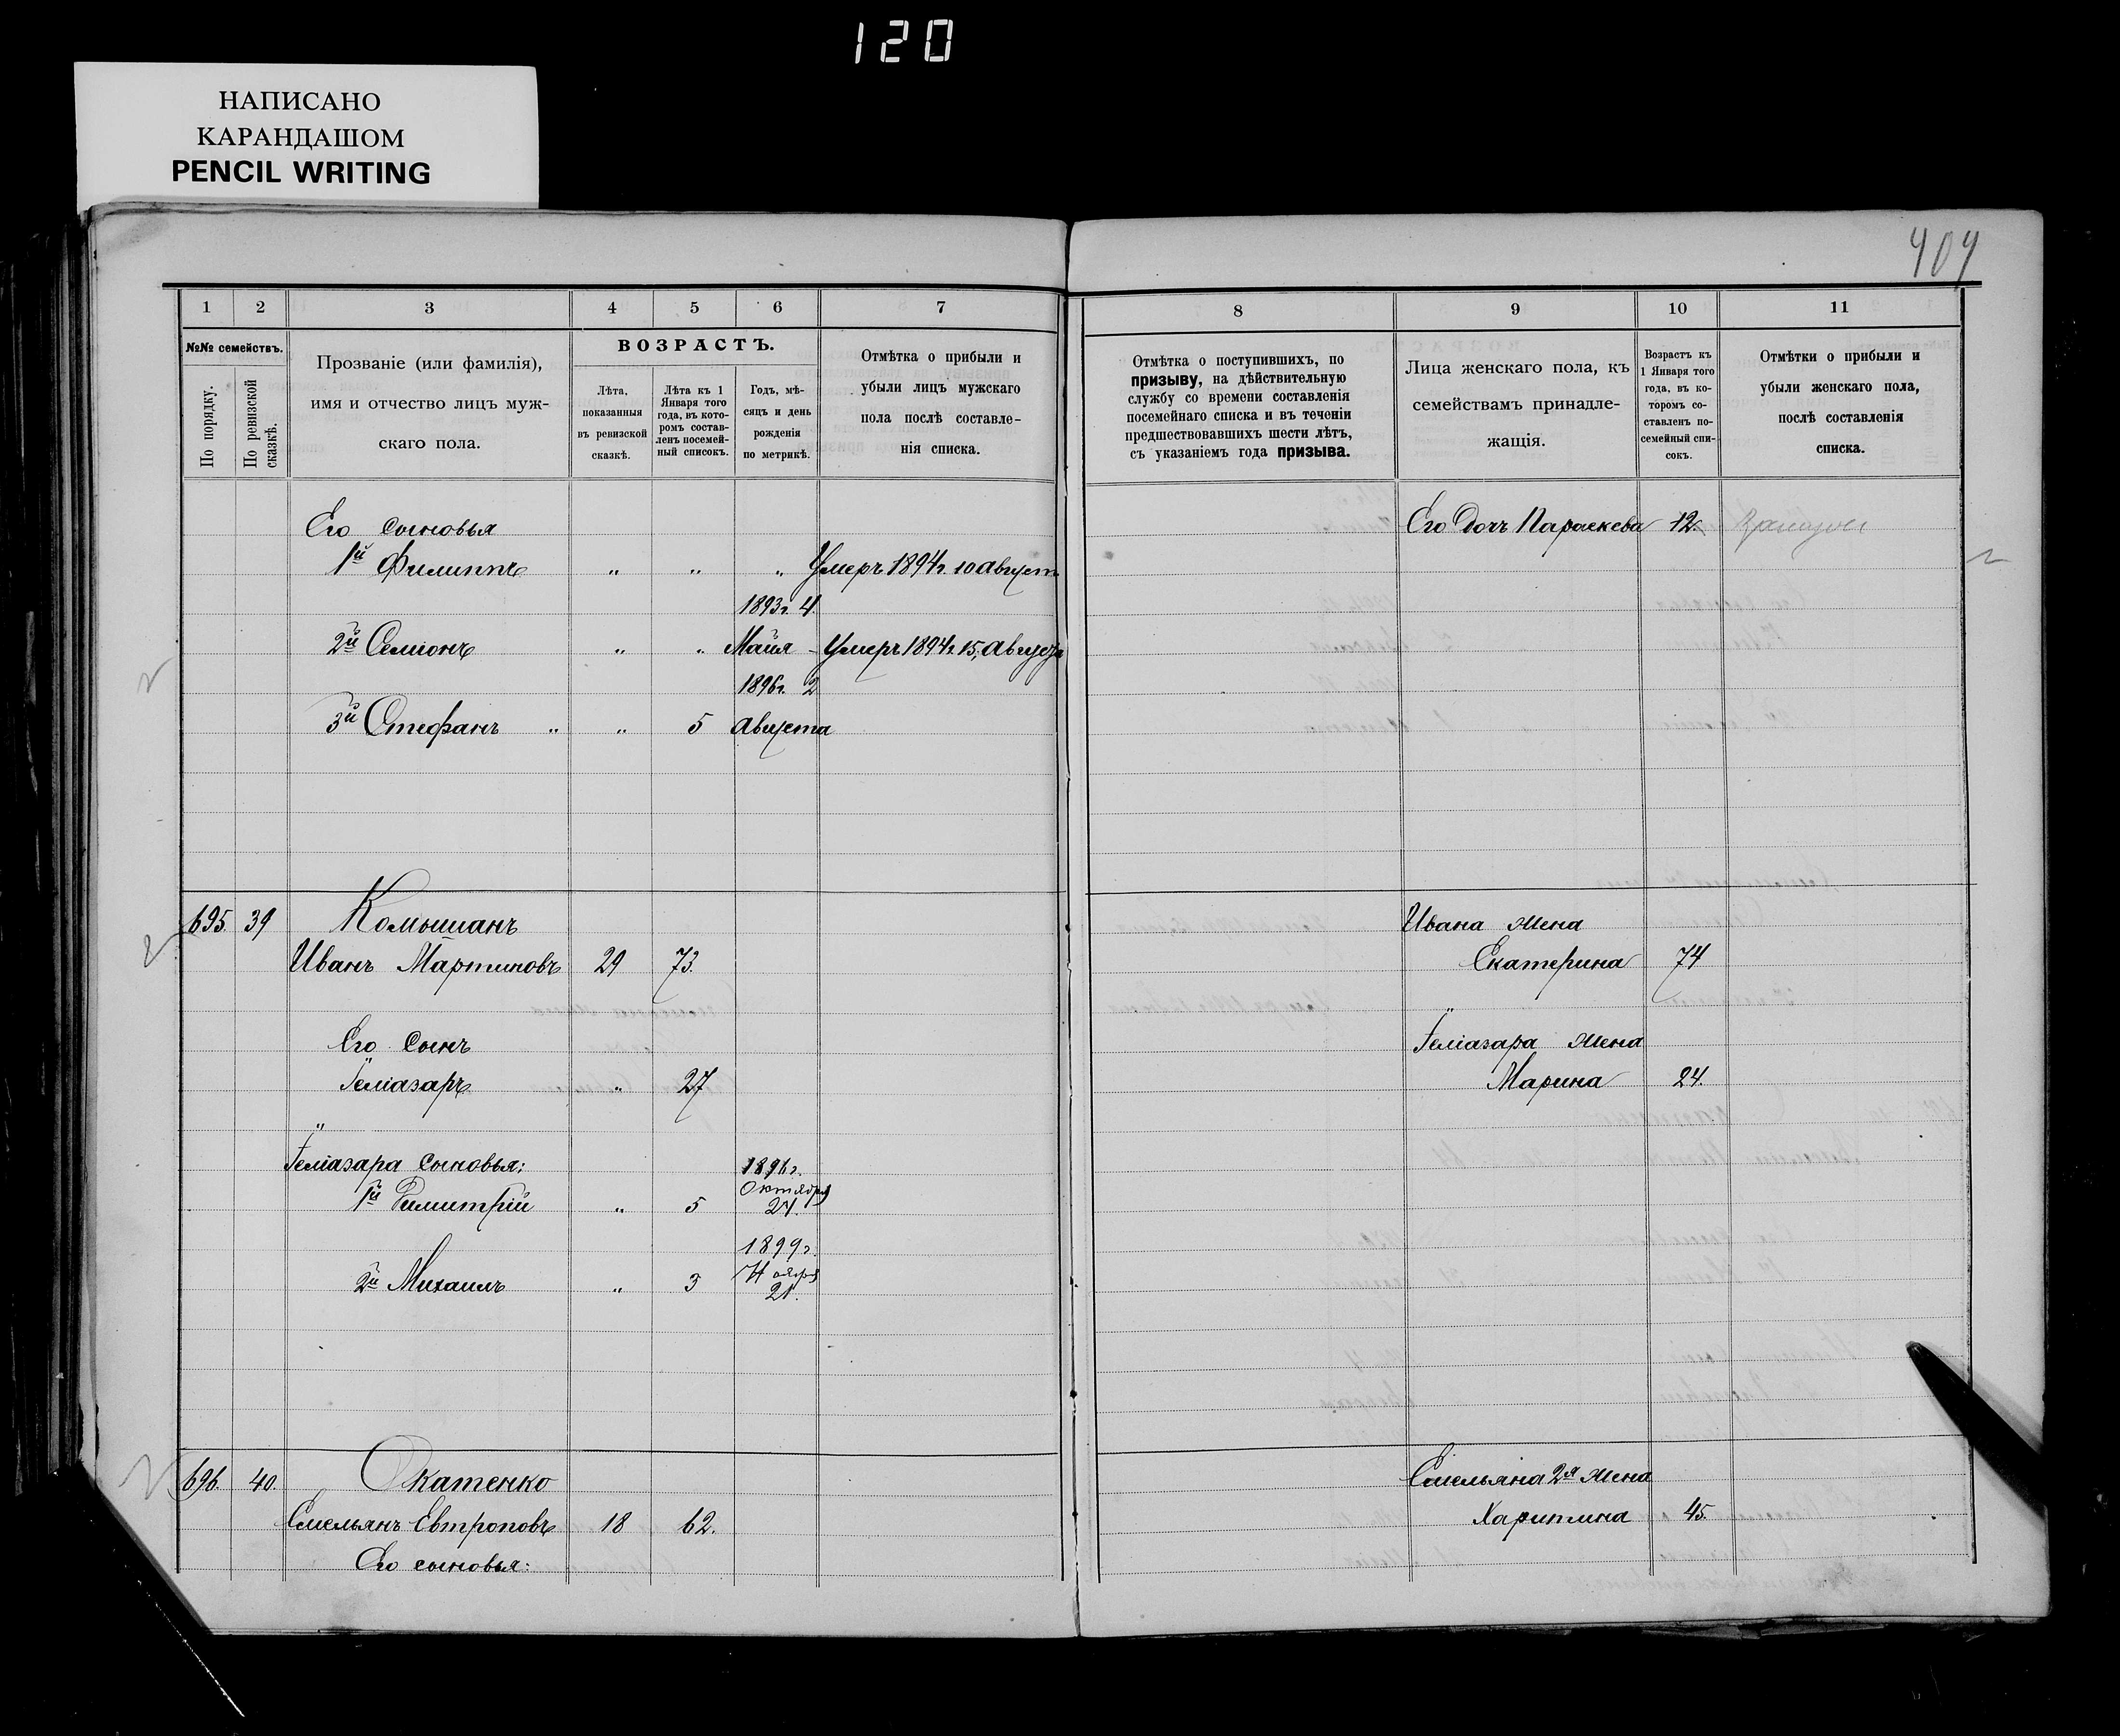 120
НАПИСАНО
КАРАНДАШОМ
PENCIL WRITING
404
1 2 3 4 5 6 7 8 9 10 11
№№ семействъ.
По порядку.
По ревизской сказкѣ.
Прозваніе (или фамилія),
имя и отчество лицъ муж-
скаго пола.
ВОЗРАСТЪ.
Лѣта,
показанныя
въ ревизской
сказкѣ.
Лѣта къ 1
Января того
года, въ кото-
ромъ состав-
ленъ посемей-
ный списокъ.
Годъ, мѣ-
сяцъ и день
рожденія
по метрикѣ.
Отмѣтка о прибыли и
убыли лицъ мужскаго
пола послѣ составле-
нія списка.
Отмѣтка о поступившихъ, по
призыву, на дѣйствительную
службу со времени составленія
посемейнаго списка и въ теченіи
предшествовавшихъ шести лѣтъ,
съ указаніемъ года призыва.
Лица женскаго пола, къ
семействамъ принадле-
жащія.
Возрастъ къ
1 Января того
года, въ ко-
торомъ со-
ставленъ по-
семейный спи-
сокъ.
Отмѣтки о прибыли и
убыли женскаго пола,
послѣ составленія
списка.
Его сыновья
Его дочь Параскева 12.
1й Филиппъ " " " Умеръ 1894г. 10 август
1893г. 4.
2й Семіонъ " " Майя - Умеръ 1894г. 15, августа
1896г. 2
3й Стефанъ " " 5 августа
695. 39 Комышанъ
Ивана жена
Иванъ Мартиновъ 29 73.
Екатерина 74
Его сынъ
Геліазара жена
Геліазаръ " 27
Марина 24.
Геліазара сыновья:
1896г.
Октября
1й Димитрій " 5 24.
1899г.
Ноября
2й Михаилъ " 3 21.
696. 40. Окатенко
Емельяна 2я жена
Емельянъ Евтроповъ 18 62.
Харитина 45.
Его сыновья: